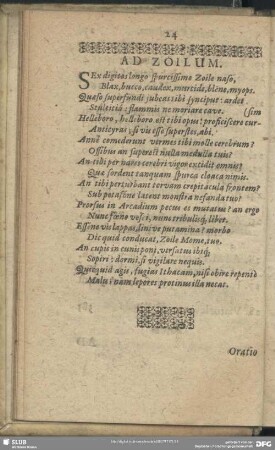 24
AD ZOILUM.
SEx digitos longo spurcissime Zoile naso,
Blax, bucco, caudex, murcide, blene, myops.
Quæso superfundi jubeas tibi synciput: ardet
Stultitiâ: flammis ne moriare cave. (sim
Helleboro, helleboro est tibi opus: proficiscere cur-
Anticyras; si vis esse superstes, abi.
Annè comederunt vermes tibi molle cerebrum?
Ossibus an superest nulla medulla tuis?
An tibi per nares cerebri vigor excidit omnis?
Quæ sordent tanquam spurca cloaca nimis.
An tibi perturbant torvam crepitacula frontem?
Sub
Prorsus in Arcadium pecus es mutatus? an ergo
Nunc fœno vesci, nunc tribulisq́; libet.
Essine vis lappas, sinive putamina? morbo
Dic quid conducat, Zoile Mome, tuo.
An cupis in cuniis poni, versatus ibiq́;
Sopiri? dormi, si vigilare nequis.
Quicquid agis, fugias Ithacam, nisi obire repentè
Malis: nam lepores protinus illa necat.
Oratio
SLUB
DFG